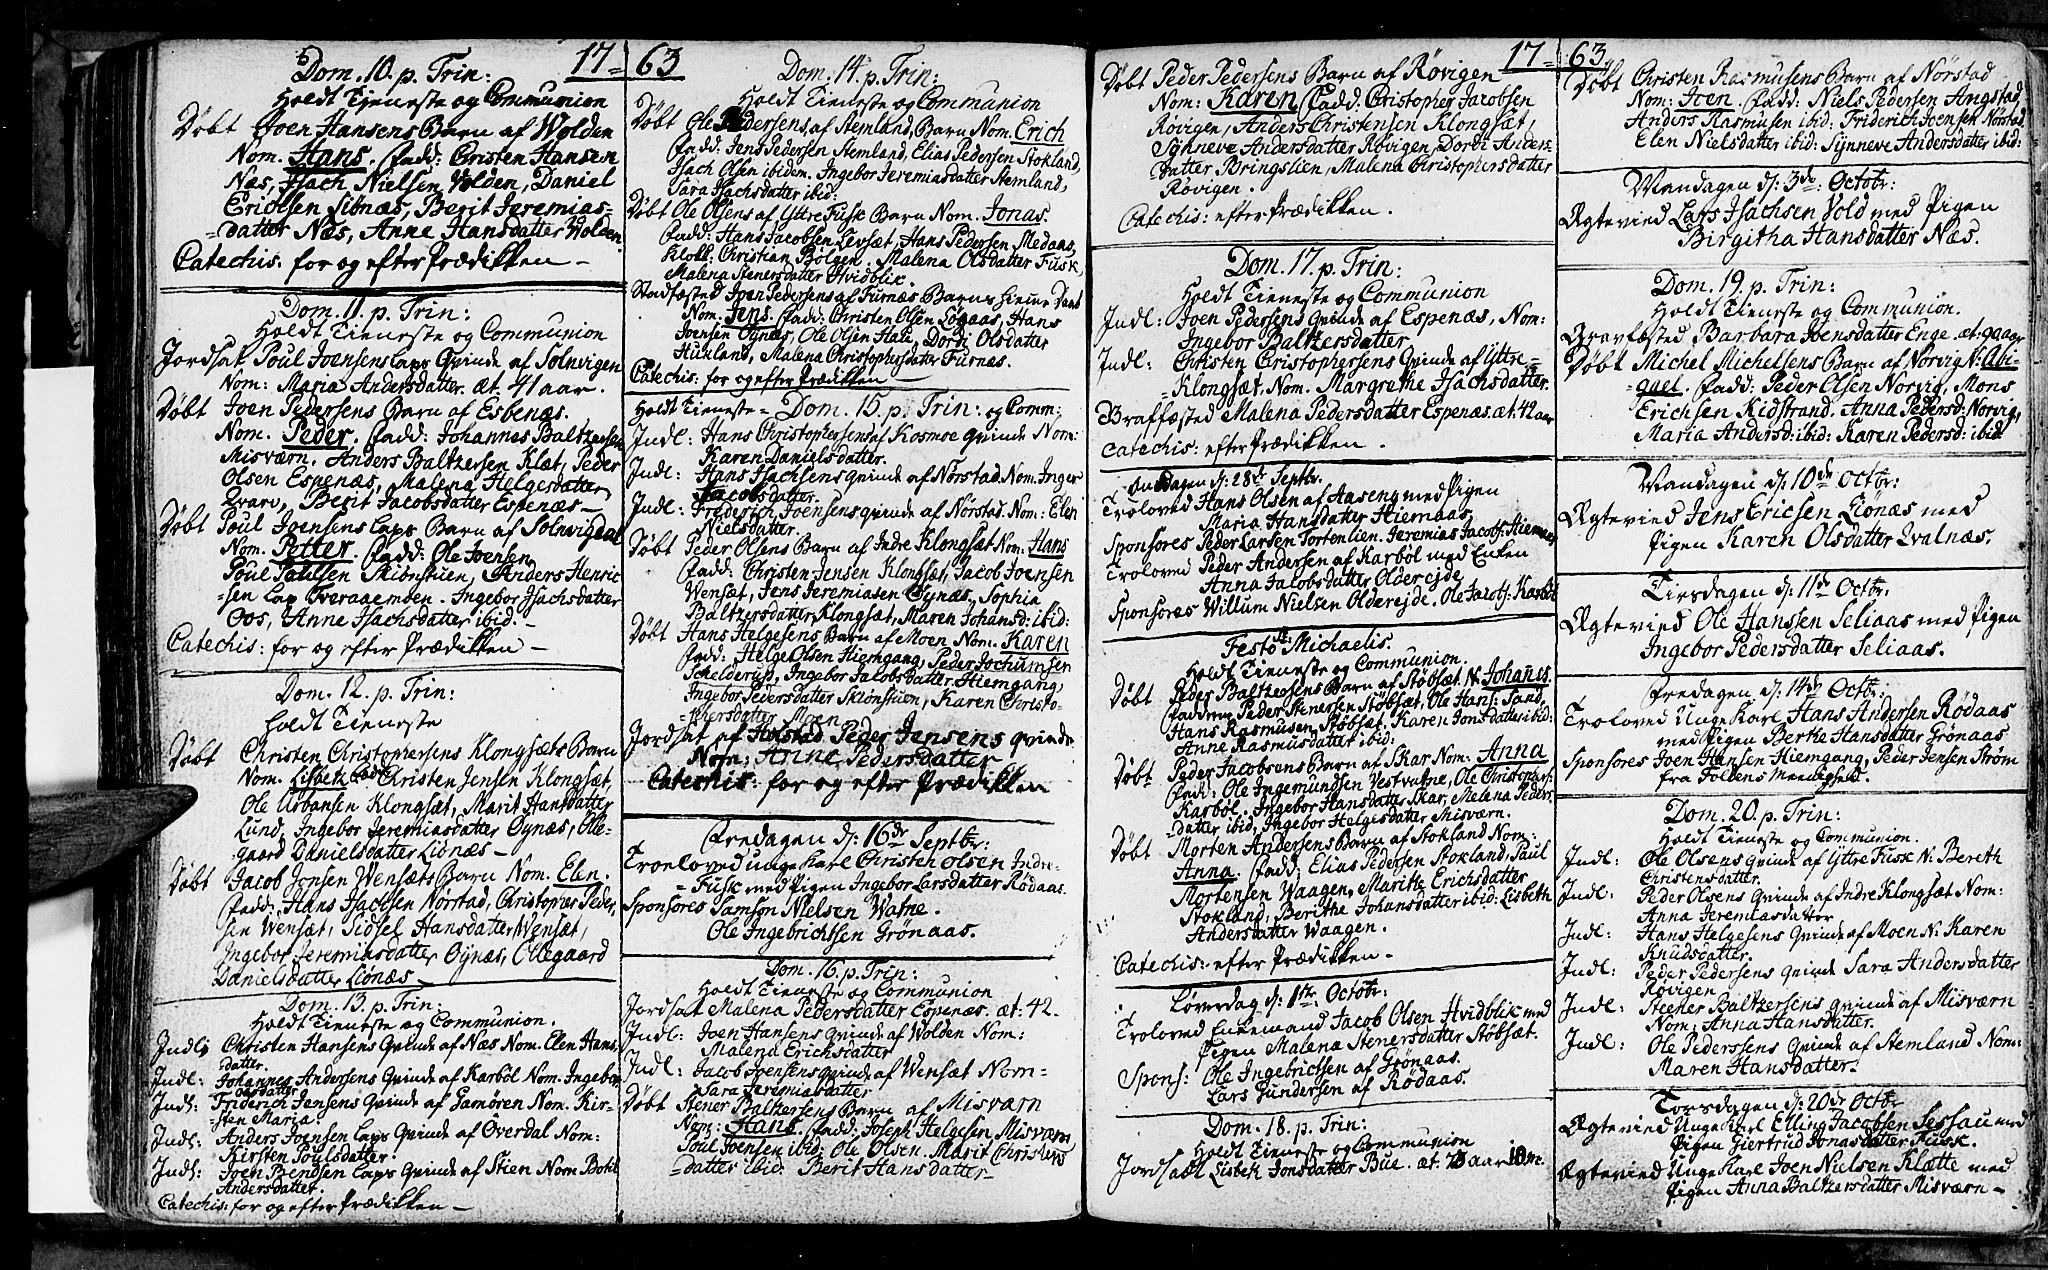 17 63
Dom. 10. p. Trin:
Holdt Tieneste og Communion
Døbt Joen Hansens Barn af Wolden
Nom. Hans. fadd: Christen Hansen
Næs, Jsach Nielsen Volden, Daniel
Erichsen Sibnæs, Berit Jeremias-
datter Næs, Anne Hansdatter Wolden.
Catechis: for og efter Prædikken –
Dom. 11. p. Trin:
Holdt Tieneste og Communion
Jordsat Poul Joensens Laps Qvinde af Solnvigen
Nom: Maria Andersdatter æt. 41 aar.
Døbt Joen Pedersens Barn af Esbenæs.
Nom. Peder. fadd: Johannes Baltzersen
Misværn. Anders Baltzersen Klæt, Peder
Olsen Espenæs, Malena Helgesdatter
Qvarv, Berit Jacobsdatter Espenæs –
Døbt Poul Joensens Laps Barn af Solnvigdal
Nom. Petter. fadd: Ole Joensen
Poul Paulsen Skionstuen, Anders Henric
sen Lap Tveraagemben. Ingebor Jsachsdatter
Oos, Anne Jsachsdatter ibid. –
Catechis: for og efter Prædikken –
Dom. 12. p. Trin:
Holdt Tieneste
Døbt Christen Christophersens Klongsæts Barn
Nom. Lisbeth fadd: Christen Jensen Klongsæt,
Ole Urbansen Klongsæt, Marit Hansdatter
Lund, Ingebor Jeremiasdatter Oynæs, Olle-
gaard Danielsdatter Liønæs –
Døbt Jacob Jonsen Wensæts Barn Nom. Elen.
fadd: Hans Jsachsen Nørstad, Christopher Peder-
sen Wensæt, Sidsel Hansdatter Wensæt,
Ingebor Jeremiasdatter Oynæs, Ollegaard
Danielsdatter Liønæs –
Dom. 13. p. Trin:
Holdt Tieneste og Communion.
Indl: Christen Hansens Qvinde af Næs Nom. Elen Hans-
datter.
Indl: Johannes Andersens Qvinde af Karbøl Nom: Ingebor
Olsdatter
Indl: Friderich Jensens Qvinde af Gamøren Nom. Kir-
sten Maria.
Indl: Anders Joensen Laps Qvinde af Overdal Nom:
Kirsten Poulsdatter.
Indl: Joen Bendsen Laps Qvinde af Stien Nom Botil
Andersdatter.
Catechis: for og efter Prædikken –
Dom. 14. p. Trin:
Holdt Tieneste og Communion
Døbt Ole Pedersens af Stemland Barn Nom. Erich
fadd: Jens Pedersen Stemland, Elias Pedersen Stokland,
Jsach Olsen ibidem. Ingebor Jeremiasdatter Stemland,
Sara Jsachsdatter ibid:
Døbt Ole Olsens af Yttre Fusk Barn Nom. Jonas.
fadd: Hans Jacobsen Levsæt, Hans Pedersen Medaas,
Klokk: Christian Bølgen. Malena Olsdatter Fusk,
Malena Stenersdatter Hvidblik.
Stadfæsted Joen Pedersens af Furnæs Barns Hieme Daab
Nom. Jens. fadd: Christen Olsen Løgaas, Hans
Joensen Oynæs, Ole Olsen Hals, Dordi Olsdatter
Huxland, Malena Christophersdatter Furnæs.
Catechis: for og efter Prædikken –
Holdt Tieneste – Dom. 15. p. Trin: og Comm:
Indl: Hans Christophersens af Kosmoe Qvinde Nom:
Karen Danielsdatter.
Indl: Hans Jsachsens Qvinde af Nørstad Nom. Inger
Jacobsdatter.
Indl: Frederich Joensens Qvinde af Nørstad Nom: Elen
Nielsdatter.
Døbt Peder Olsens Barn af Indre Klongsæt Nom: Hans
fadd: Christen Jensen Klongsæt, Jacob Joensen
Wensæt, Jens Jeremiasen Oynæs, Sophia
Baltzersdatter Klongsæt, Maren Johansd: ibid:
Døbt Hans Helgesens Barn af Moen Nom. Karen
fadd: Helge Olsen Hiemgang, Peder Jochumsen
Schelderup, Ingebor Jacobsdatter Hiemgang,
Ingebor Pedersdatter Skionstuen, Karen Christo-
phersdatter Moen
Jordsat af Peder Jensens Qvinde
Nom: Anne Pedersdatter
Catechis: for og efter Prædikken
Fredagen d: 16de Septbr:
Troeloved unge Karl Christen Olsen Indre-
Fusk med Pigen Ingebor Larsdatter Rødaas.
Sponsores Samson Nielsen Watne.
Ole Ingebrichtsen Grønaas.
Dom. 16. p. Trin:
Holdt Tieneste og Communion
Jordsat Malena Pedersdatter Espenæs. æt. 42.
Indl: Joen Hansens Qvinde af Wolden Nom:
Malena Erichsdatter
Indl: Jacob Joensens Qvinde af Wensæt Nom –
Sara Jeremiasdatter
Døbt Stener Baltzersens Barn af Misværn
Nom: Hans. fadd: Joseph Helgesen Misværn,
Poul Joensen ibid: Ole Olsen. Marit Christens
datter ibid: Berit Hansdatter –
17 63
Døbt Peder Pedersens Barn af Røvigen
Nom: Karen fadd: Christopher Jacobsen
Røvigen, Anders Christensen Klongsæt,
Synneve Andersdatter Røvigen, Dordi Anders-
datter Bringslien, Malena Christophersdatter
Røvigen.
Catechis: efter Prædikken.
Dom. 17. p. Trin:
Holdt Tieneste og Communion
Indl: Joen Pedersens Qvinde af Espenæs, Nom:
Ingebor Baltzersdatter.
Indl: Christen Christophersens Qvinde af Yttre-
Klongsæt, Nom. Margrethe Jsachsdatter.
Graffæsted Malena Pedersdatter Espenæs. æt. 42 aar
Catechis: efter Prædikken.
Onsdagen d: 28de Septbr.
Troloved Hans Olsen af Aaseng med Pigen
Maria Hansdatter Hiemaas
Sponsores Peder Larsen Tortenlien. Jeremias Jacobs: Hiemaas
Troloved Peder Andersen af Karbøl med Enken
Anna Jacobsdatter Oldereide
Sponsores Willum Nielsen Oldereide. Ole Jacobs: Karbøl
Festo St: Michaelis.
Holdt Tieneste og Communion.
Døbt Peder Baltzersens Barn af Støbsæt N: Johanes.
faddrene Peder Stenersen Støbsæt, Ole Hans: Sand,
Hans Rasmusen Støbsæt. Karen Jonsdatter ibid:
Anne Rasmusdatter ibid:
Døbt Peder Jacobsens Barn af Skar Nom: Anna
fadd: Ole Ingemundsen Vestvatne, Ole Christophers:
Karbøl, Ingebor Hansdatter Skar, Malena Peders-
datter ibid, Ingebor Helgesdatter Misværn.
Døbt Morten Andersens Barn af Stokland Nom:
Anna. fadd: Elias Pedersen Stokland, Paul
Mortensen Waagen, Marithe Erichsdatter
Stokland, Berithe Johansdatter ibid: Lisbeth
Andersdatter Waagen.
Catechis: efter Prædikken.
Løverdag d: 1te Octobr:
Troloved Enkemand Jacob Olsen Hvidblik med
Pigen Malena Stenersdatter Støbsæt.
Spons: Ole Ingebrictsen af Grønaas.
Lars Gundersen af Rødaas.
Dom. 18. p. Trin:
Holdt Tieneste og Communion
Jordsatt Lisbeth Jonsdatter Bue. æt. 73 aar 10 m.
Døbt Christen Rasmusens Barn af Nørstad
Nom: Joen. fadd: Niels Pedersen Angstad
Anders Rasmusen ibid: Friderich Joensen Nørstad
Elen Nielsdatter ibid: Synneve Andersdatter ibid:
Mandagen d: 3de Octobr:
Ægteviet Lars Jsachsen Vold med Pigen
Birgitha Hansdatter Næs.
Dom. 19. p. Trin:
Holdt Tieneste og Communion.
Gravfæsted Barbara Joensdatter Enge. æt. 9 aar
Døbt Michel Michelsens Barn af Norvig N: Abi-
gael. fadd: Peder Olsen Norvig, Mons
Erichsen Kidstrand. Anna Pedersd: Norvig,
Maria Andersd: ibid: Karen Pedersd: ibid
Mandagen d: 10de Octbr:
Ægteviet Jens Ericsen Liønæs med
Pigen Karen Olsdatter Qvalnæs.
Tirsdagen d: 11te Octbr:
Ægteviet Ole Hanssen Seliaas med Pigen
Ingebor Pedersdatter Seliaas.
Fredagen d: 14de Octbr:
Troloved Unge Karl Hans Andersen Rødaas
med Pigen Berthe Hansdatter Grønaas
Sponsores Joen Hansen Hiemgang, Peder Jensen Strøm
fra Foldens Menighed.
Dom. 20. p. Trin:
Holdt Tieneste og Communion.
Indl: Ole Olsens Qvinde af Yttre Fusk N: Bereth
Christensdatter.
Indl: Peder Olsens Qvinde af Indre Klongsæt Nom:
Anna Jeremiasdatter
Indl: Hans Helgesens Qvinde af Moen N: Karen
Knudsdatter.
Indl: Peder Pedersens Qvinde Sara Andersdatter
Røvigen.
Indl: Steener Baltzersens Qvinde af Misværn
Nom: Anna Hansdatter.
Indl: Ole Pederssens Qvinde af Stemland Nom:
Maren Hansdatter.
Torsdagen d: 20de Octbr
Ægteviet Unge Karl Elling Jacobsen Sessau med
Pigen Giertrud Jonasdatter Fusk.
Ægteviet Unge Karl Joen Nielsen Klætte med
Pigen Anna Baltzersdatter Misværn –